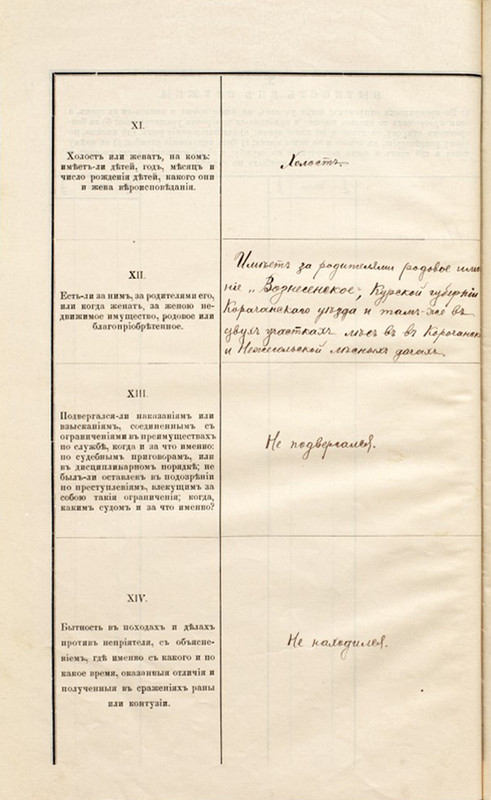 XI.
Холостъ или женатъ, на комъ:
имѣетъ-ли дѣтей, годъ, мѣсяцъ и
число рожденія дѣтей, какого они
и жена вѣроисповѣданія.
Холостъ.
XII.
Есть-ли за нимъ, за родителями его,
или когда женатъ, за женою не-
движимое имущество, родовое или
благопріобрѣтенное.
Имѣетъ за родителями родовое имѣ
ніе „Вознесенское", Курской губерніи
Корочанскаго уѣзда и тамъ-же въ
двухъ участкахъ лѣсъ въ Корочанск
и Нежегольской лѣсныхъ дачахъ.
XIII.
Подвергался-ли наказаніямъ или
взысканіямъ, соединеннымъ съ
ограниченіями въ преимуществахъ
по службѣ, когда и за что именно:
по судебнымъ приговорамъ, или
въ дисциплинарномъ порядкѣ; не
былъ-ли оставленъ въ подозрѣніи
по преступленіямъ, влекущимъ за
собою такія ограниченія; когда,
какимъ судомъ и за что именно?
Не подвергался.
XIV.
Бытность въ походахъ и дѣлахъ
противъ непріятеля, съ объясне-
ніемъ, гдѣ именно съ какого и по
какое время, оказанныя отличія и
полученныя въ сраженіяхъ раны
или контузіи.
Не находился.